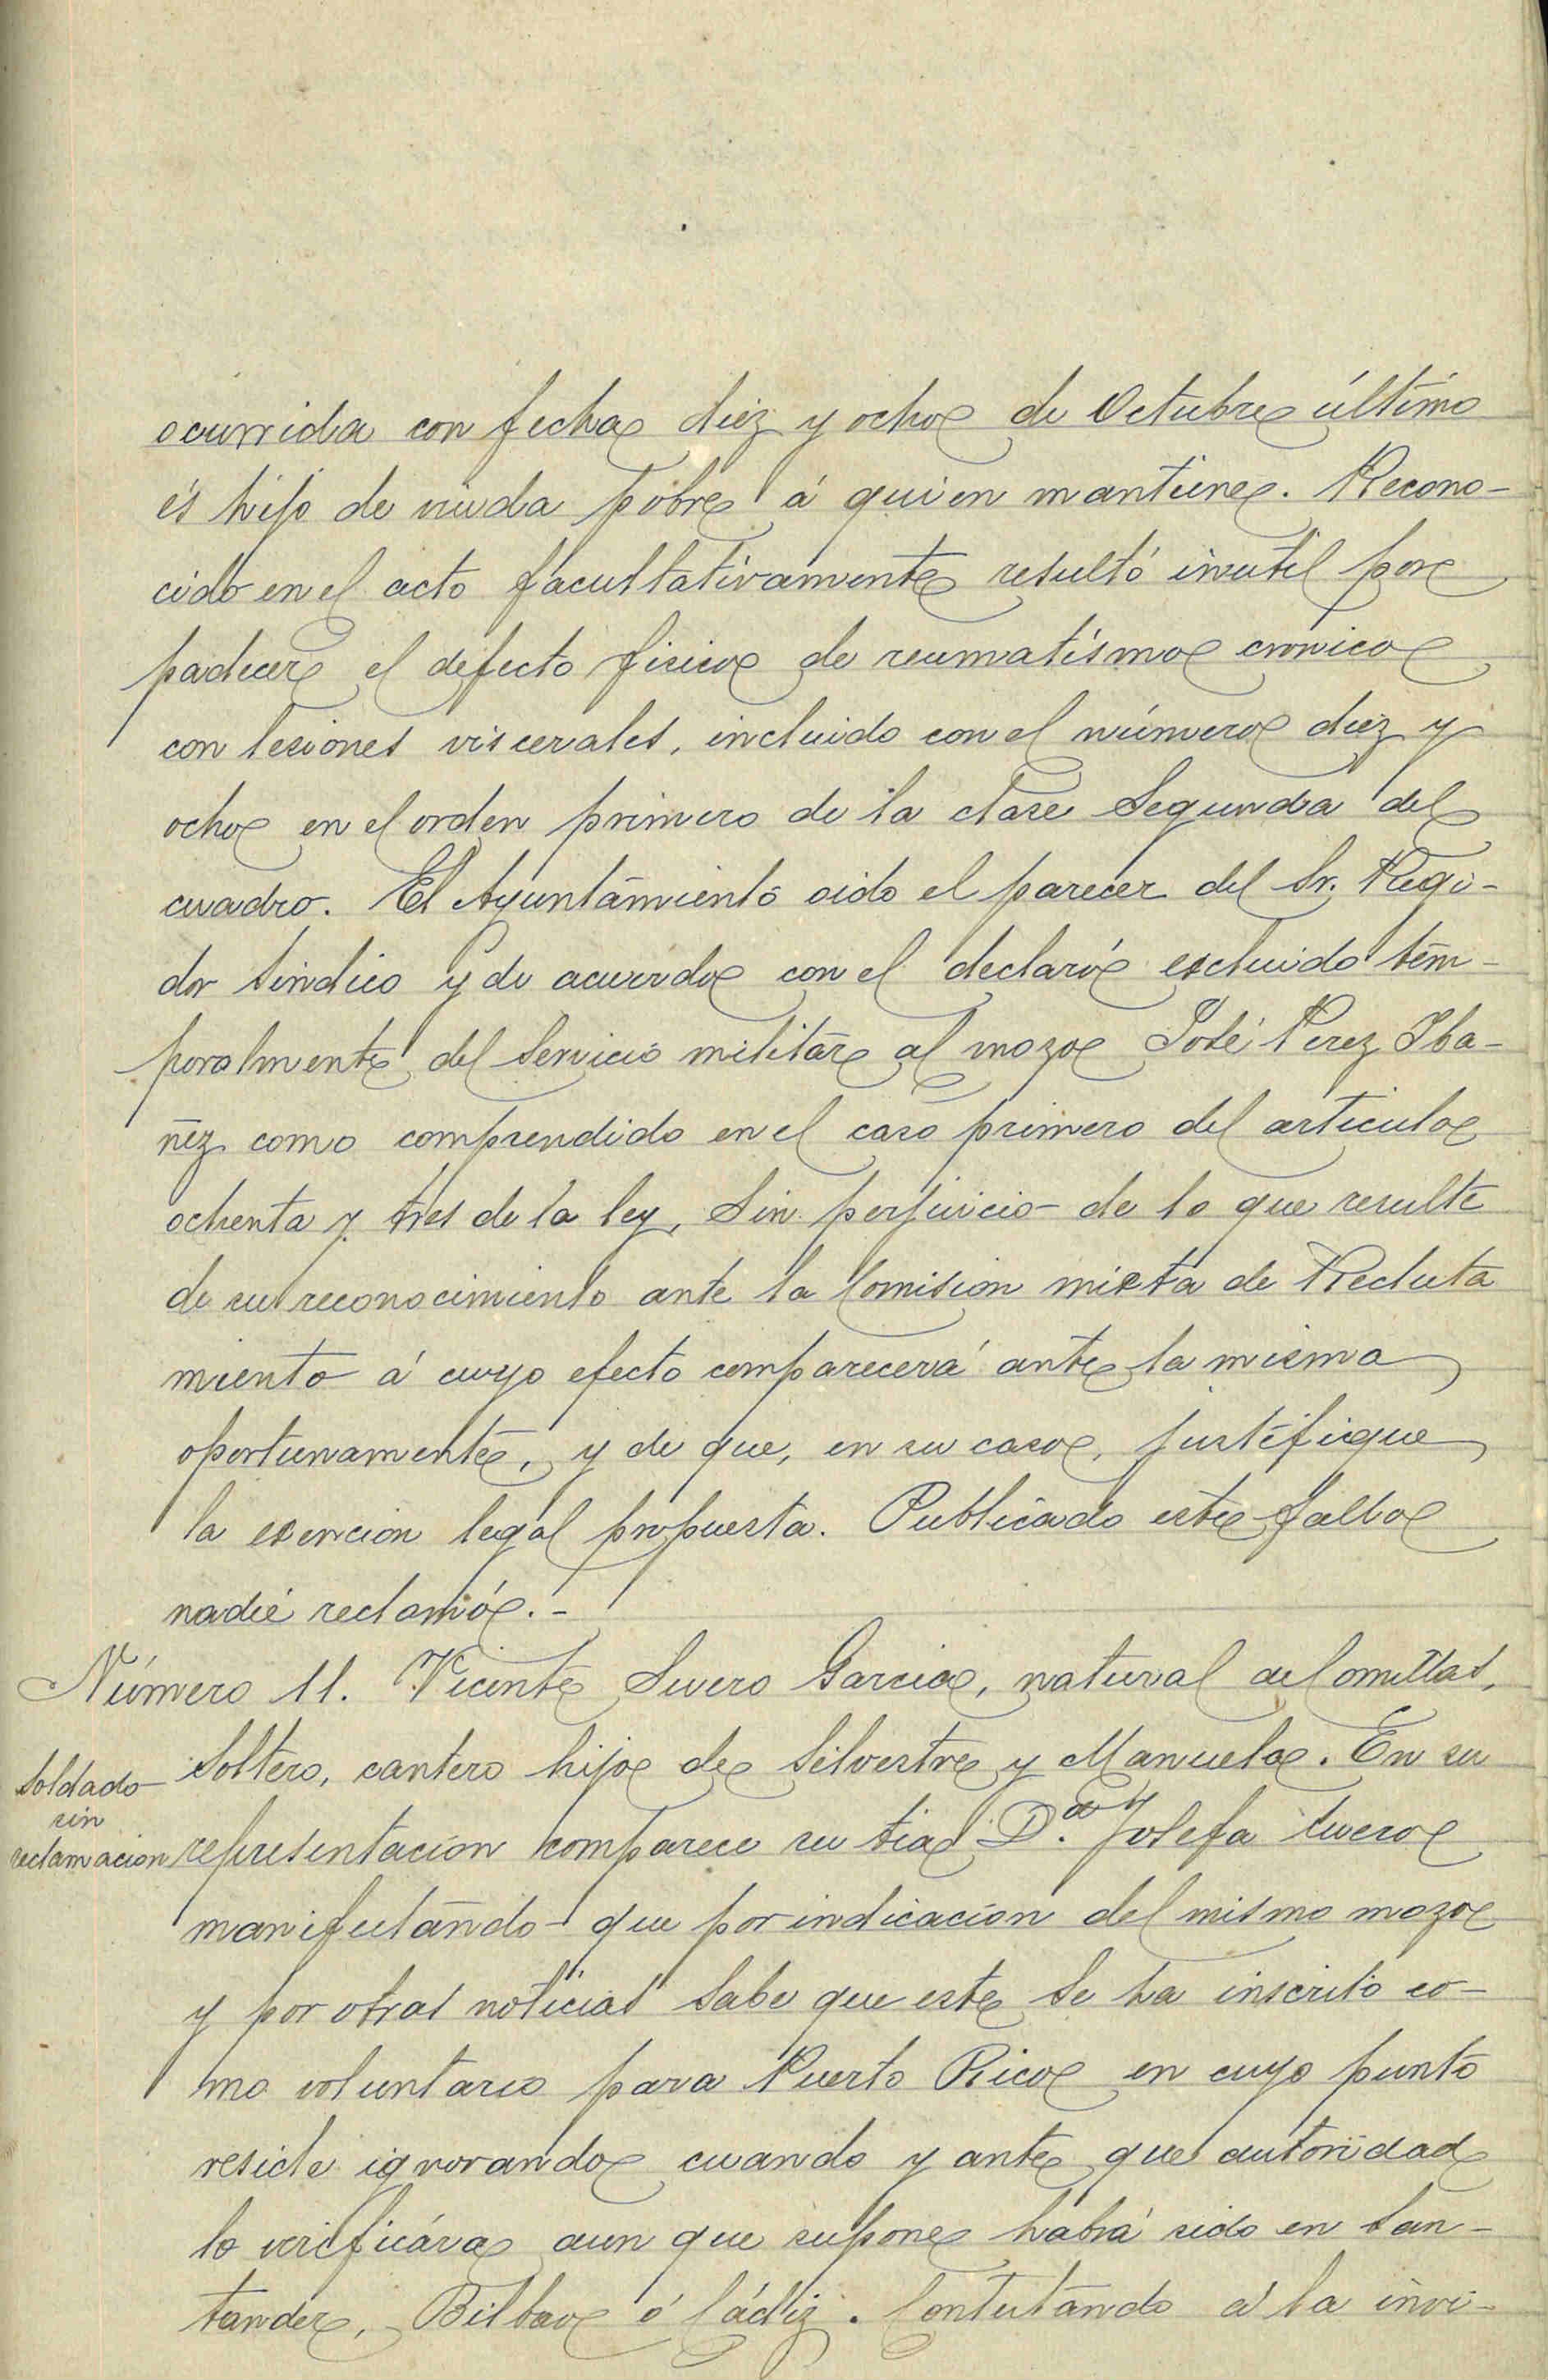 ocurrida con fecha diez y ocho de Octubre último
és hijo de viuda pobre á quien mantiene. Recono-
cido en el acto facultativamente resultó inutil por
padecer el defecto fisico de reumatismo cronico
con lesiones viscerales, incluido con el número diez y
ocho en el orden primero de la clase Segunda del
cuadro. El Ayuntamiento oido el parecer del Sr. Regi-
dor Sindico y de acuerdo con el declaró excluido tem-
poralmente del Servicio militar al mozo José Perez Iba-
ñez como comprendido en el caso primero del articulo
ochenta y tres de la ley, Sin perjuicio de lo que resulte
de su reconocimiento ante la Comision mixta de Recluta
miento á cuyo efecto comparecerá ante la misma
oportunamente, y de que, en su caso, justifique
la exencion legal propuesta. Publicado este fallo
nadie reclamó.-
Número 11. Vicente Suero Garcia, natural de Comillas,
Soltero, cantero hijo de Silvestre y Manuela. En su
Soldado
sin
reclamacion
representacion comparece su tia D.ª Josefa Suero
manifestando que por indicacion del mismo mozo
y por otras noticias Sabe que este Se ha inscrito co-
mo voluntario para Puerto Rico en cuyo punto
reside ignorando cuando y ante que autoridad
lo verificára aun que supone habrá sido en San-
tander, Bilbao ó Cádiz. Contestando á la invi-